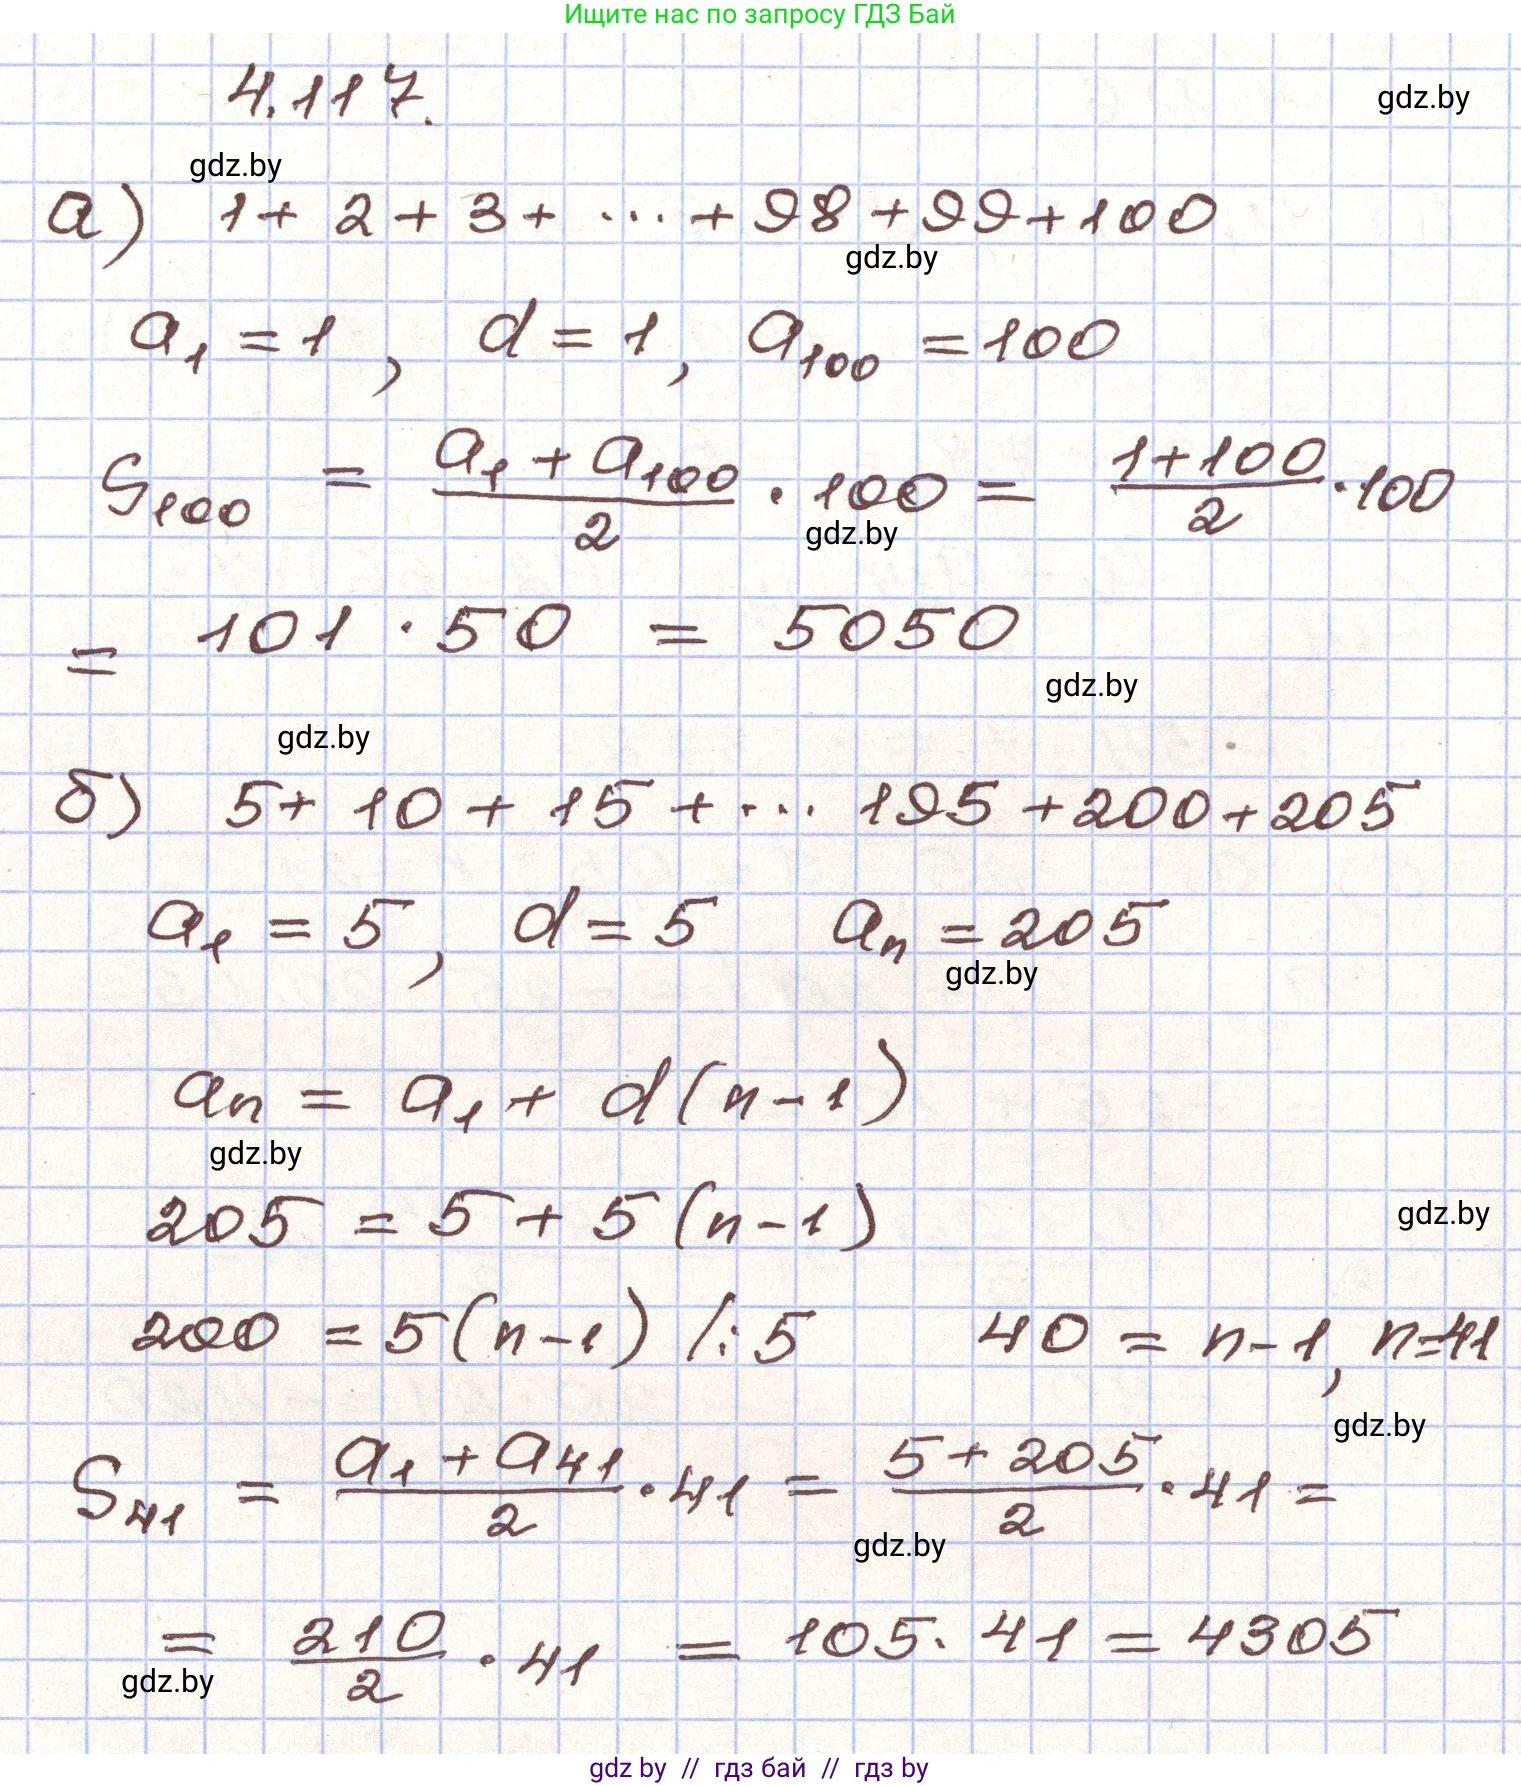 Ищите нас по запросу ГДЗ Бай
4.117.
gdz.by
gdz.by
а) 1 + 2 + 3 + ... + 98 + 99 + 100
gdz.by
a₁ = 1, d = 1, a₁₀₀ = 100
S₁₀₀ = (a₁ + a₁₀₀)/2 · 100 = (1 + 100)/2 · 100
gdz.by
= 101 · 50 = 5050
gdz.by
gdz.by
б) 5 + 10 + 15 + ... 195 + 200 + 205
a₁ = 5, d = 5 aₙ = 205
gdz.by
aₙ = a₁ + d(n - 1)
gdz.by
205 = 5 + 5(n - 1)
gdz.by
200 = 5(n - 1) /:5 40 = n - 1, n = 41
gdz.by
S₄₁ = (a₁ + a₄₁)/2 · 41 = (5 + 205)/2 · 41 =
gdz.by
= 210/2 · 41 = 105 · 41 = 4305
gdz.by
gdz by // гдз бай // гдз by